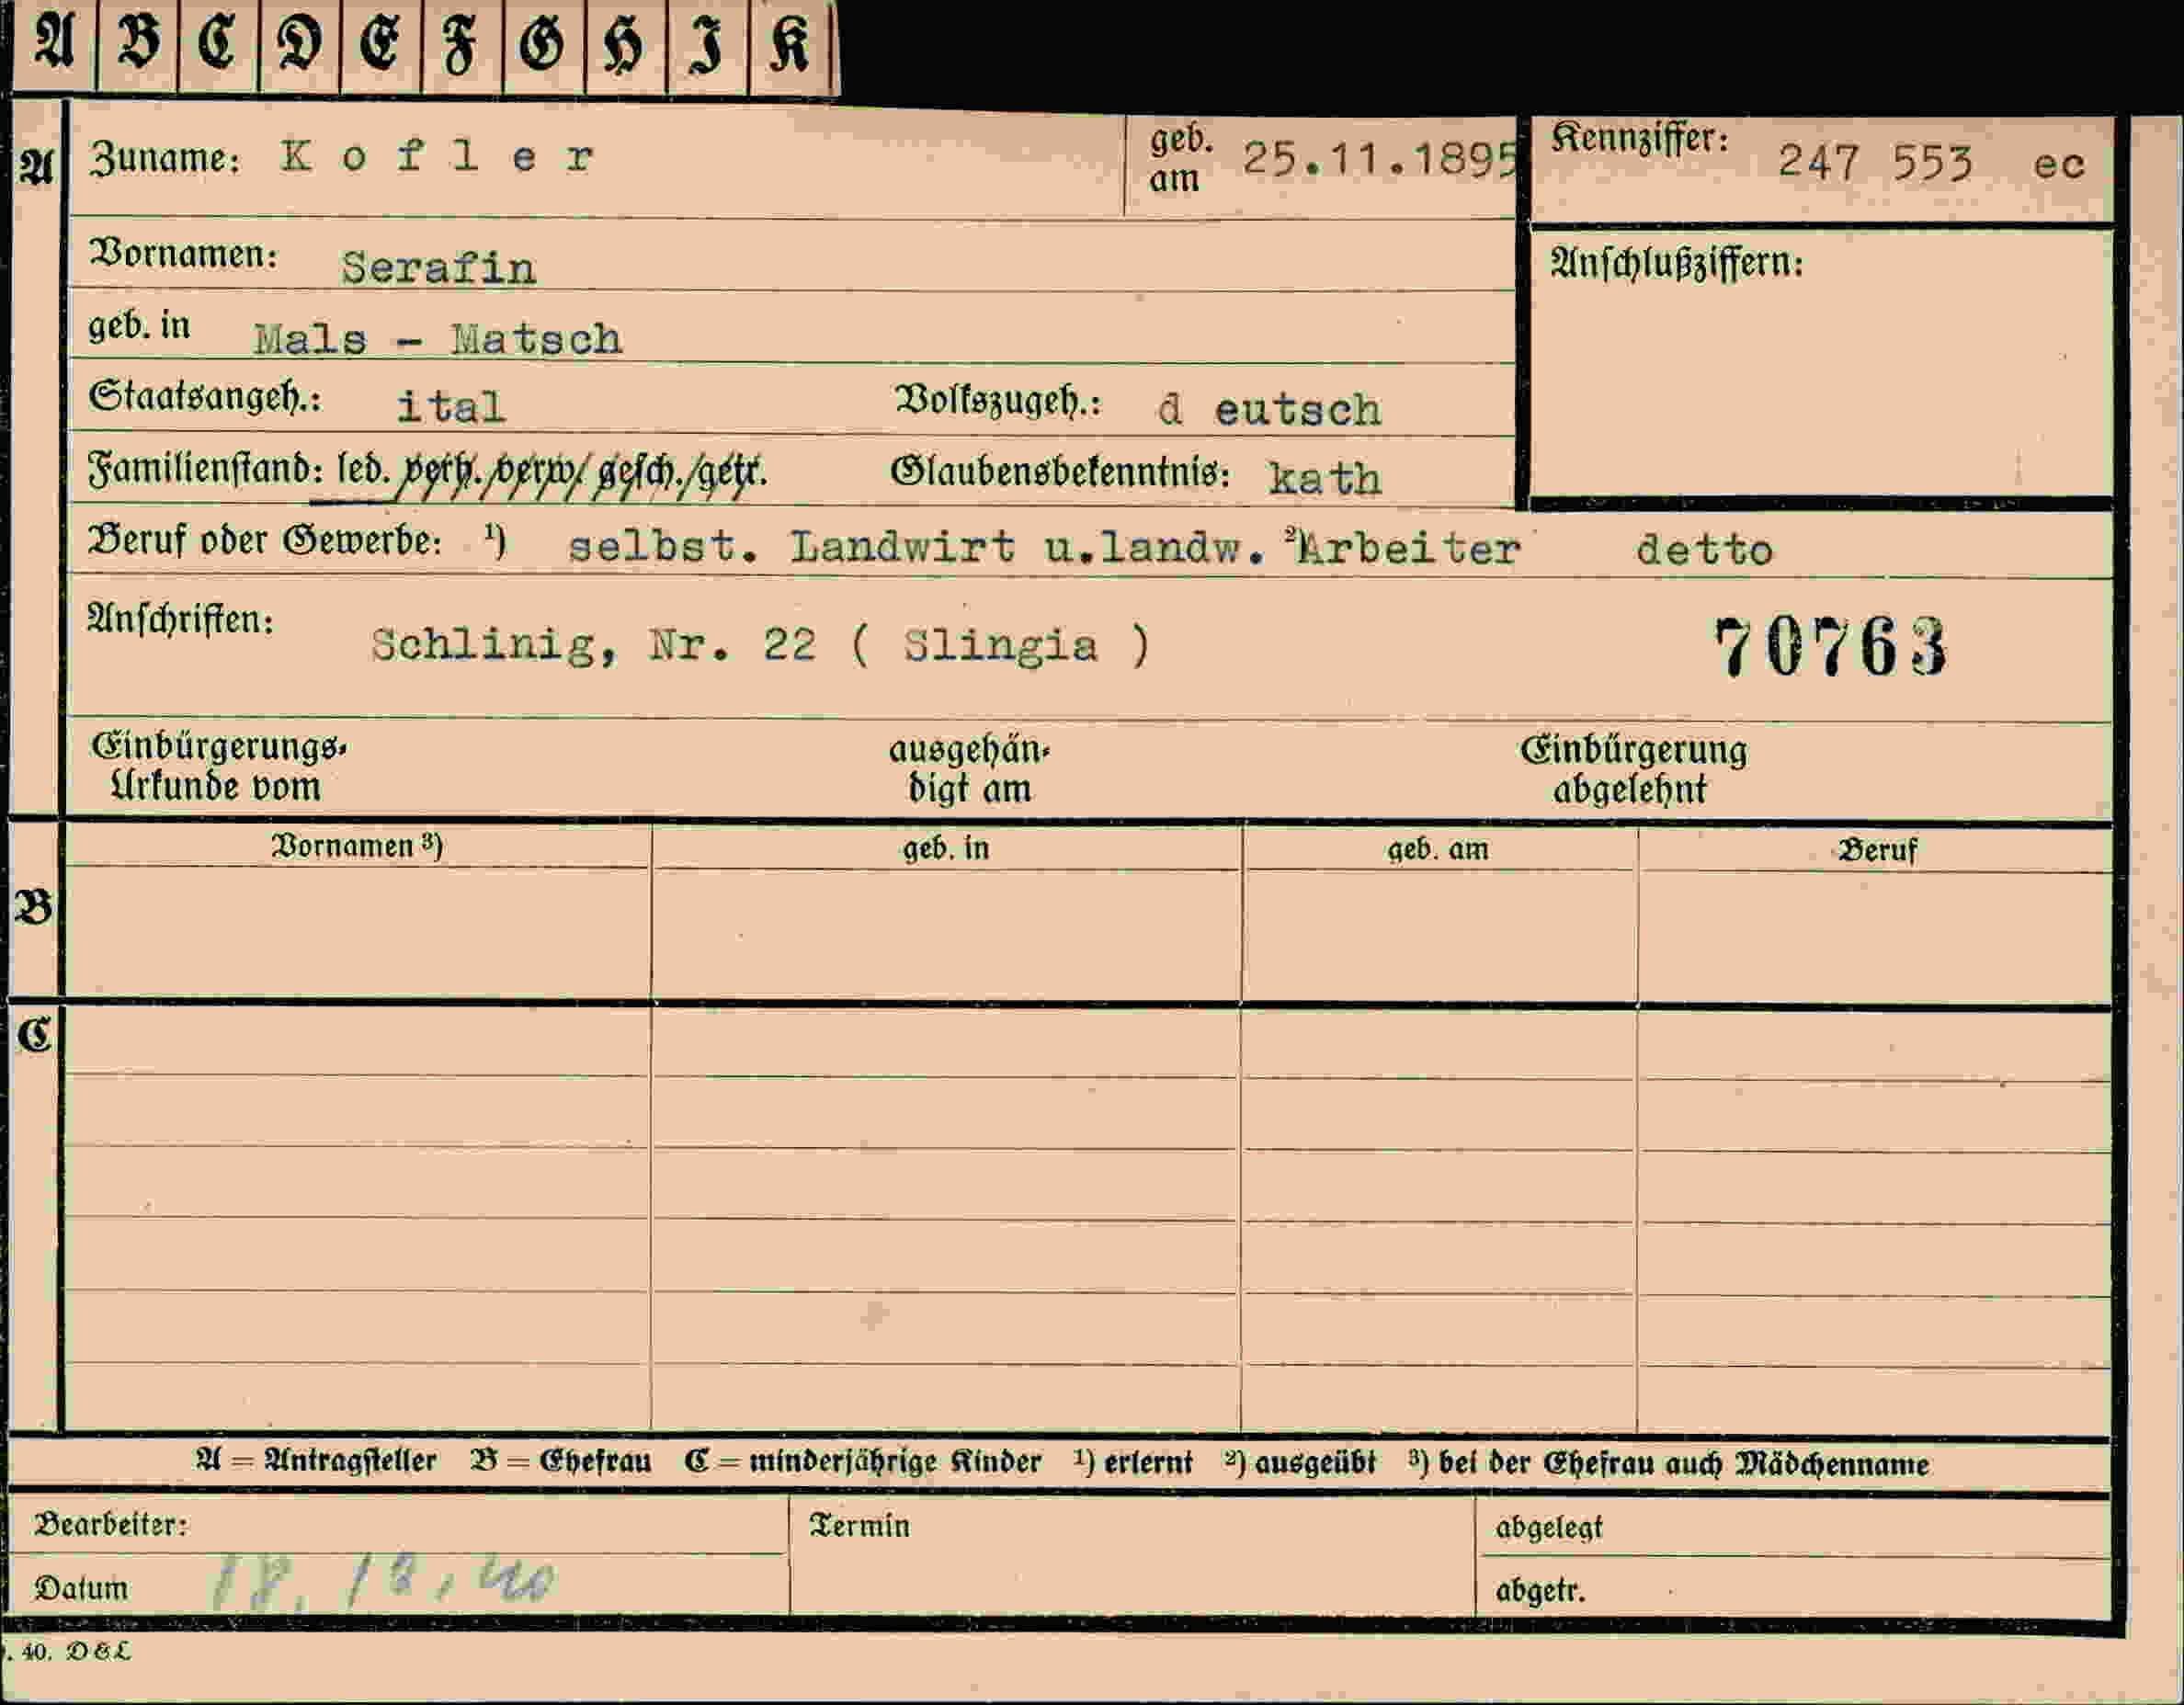 A B C D E F G H I K
A Zuname: Kofler geb. am 25.11.1895 Kennziffer: 247 553 ec
Vornamen: Serafin Anschlußziffern:
geb. in Mals - Matsch
Staatsangeh.: ital Volkszugeh.: d eutsch
Familienstand: led. verh./verw/gesch./getr. Glaubensbekenntnis: kath
Beruf oder Gewerbe: ¹) selbst. Landwirt u.landw. ²)Arbeiter detto
Anschriften: Schlinig, Nr. 22 ( Slingia ) 70763
Einbürgerungs- ausgehän- Einbürgerung
Urkunde vom digt am abgelehnt
Vornamen ³) geb. in geb. am Beruf
B
C
A = Antragsteller B = Ehefrau C = minderjährige Kinder ¹) erlernt ²) ausgeübt ³) bei der Ehefrau auch Mädchenname
Bearbeiter: Termin abgelegt
Datum abgetr.
. 40. D&L